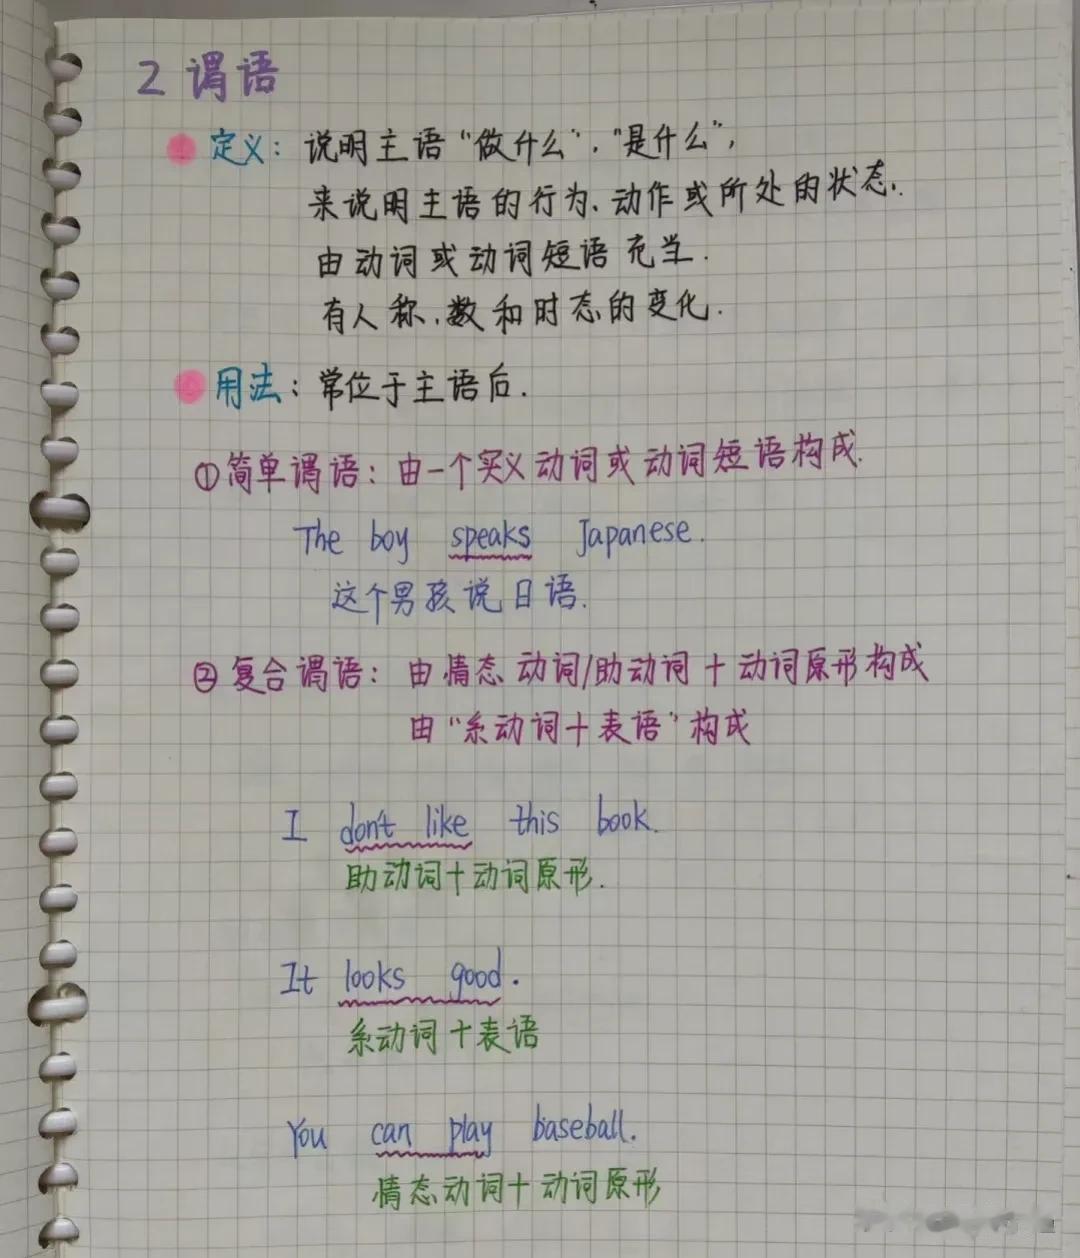 2 谓语
定义：说明主语“做什么”，“是什么”，
来说明主语的行为、动作或所处的状态.
由动词或动词短语充当.
有人称、数和时态的变化.
用法：常位于主语后.
①简单谓语：由一个实义动词或动词短语构成.
The boy speaks Japanese.
这个男孩说日语.
②复合谓语：由情态动词/助动词+动词原形构成
由“系动词+表语”构成
I don't like this book.
助动词+动词原形.
It looks good.
系动词+表语
You can play baseball.
情态动词+动词原形